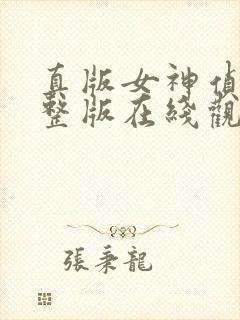 真版女神偵
整版在綫觀
張秉龍